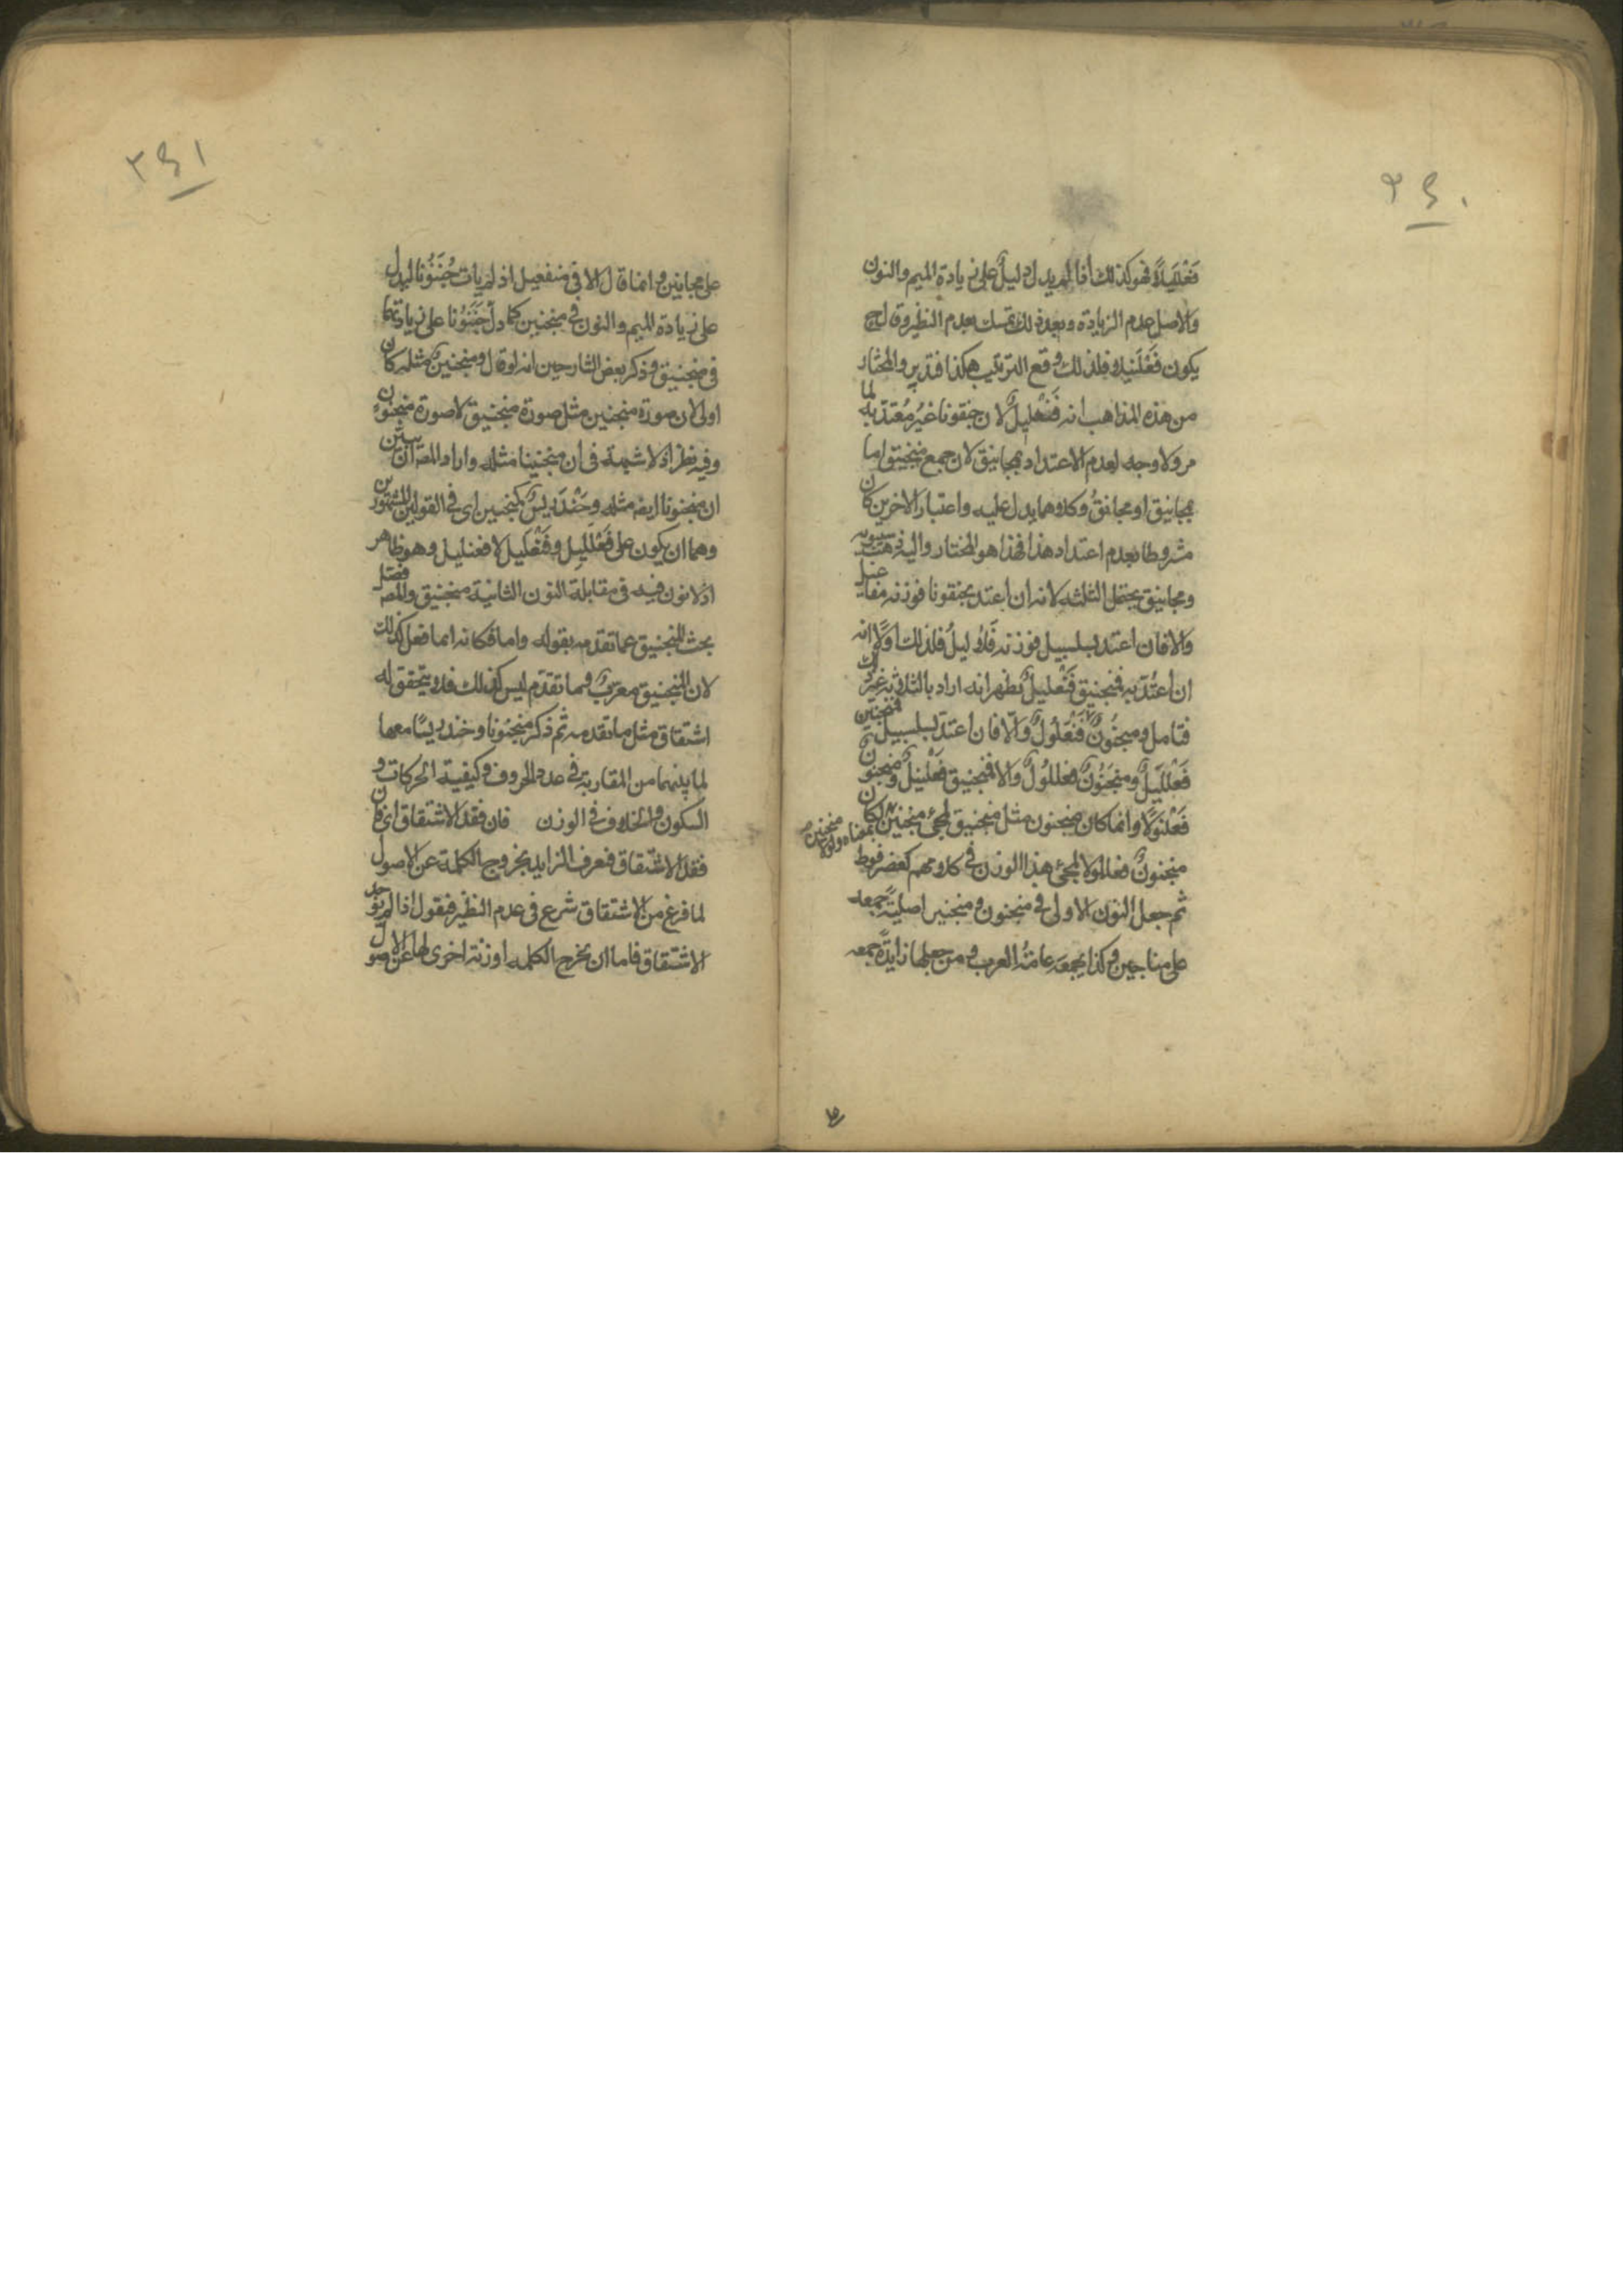 ٢٤٠
فَعْلَلِيلًا فهو كذلك اذا لم يدل دليل على زيادة الميم والنون
والاصل عدم الزيادة وبعد ذلك تمسك بعدم النظير وقال ح
يكون فَعْلَنيلا فلذلك وقع الترتيب هكذا فتدبر والمختار
من هذه المذاهب انه فَنْعَلِيلٌ لان جنقونا غيرُ مُعْتَدّ به لما
مر ولا وجه لعدم الاعتداد بمجانيق لان جمع منجنيق اما
مجانيق او مجانقُ وكلاهما يدل عليه واعتبار الاخرين كان
مشروطا بعدم اعتداد هذا فهذا هو المختار واليه ذهب سيبويه
ومجانيق يحتمل الثلثه لانه ان اعتد بجنقونا فوزنه مفاعيل
والا فان اعتد بسلسبيل فوزنه فَلاليلُ فلذلك اولا انه
ان اعتُدّ به فمنجنيق فَنْعَليلٌ يظهر انه اراد بالثلاثة غير ذلك
فتامل ومنجنُونٌ فَنْعَلُولٌ والّا فان اعتدّ بسلسبيل فمنجنين
فَعْلَلِيلٌ ومنجَنُونٌ فعللُولٌ والا فمنجنيق فَعْلَنيلٌ ومنجنون
فَعْلَنَوْلًا وانما كان منجنون مثل منجنيق لمجئ منجنين بمعناه ولولا منجنين لكان
منجنونٌ فعللولا لمجئ هذا الوزن في كلامهم كعضرفوط
ثم جعل النون الاولى في منجنون ومنجنين اصليةً جمعه
على مناجين وكذا يجمعه عامةُ العرب ومن جعلها زايدةً جمعه
٢٤١
على مجانين وانما قال الا في منفعيل اذ لم يات جُنَنُونا ليدل
على زيادة الميم والنون في منجنين كما دل جَنَقُونا على زيادتهما
في منجنيق وذكر بعض الشارحين انه لو قال ومنجنينٌ مثله كان
اولى لان صورة منجنين مثل صورة منجنيق لا صورة منجنون
وفيه نظر اذ لا شبهة في ان منجنينا مثله واراد المصـ ان يبين
ان منجنونا ايضا مثله وخَنْدَريسٌ كمنجنين اى في القولين المشهورين
وهما ان يكون على فَعْلَلِيل وفَنْعَلِيل لا فعنليل وهو ظاهر
اذ لا نون فيه في مقابلة النون الثانية منجنيق والمصـ فصل
بحث المنجنيق عما تقدمه بقوله واما فكانه انما فعل كذلك
لان المنجنيق معرّبٌ وما تقدّم ليس كذلك فلا يتحقق له
اشتقاق مثل ما تقدمه ثم ذكر منجنُونا وخندريسًا معها
لما بينهما من المقاربة في عدد الحروف وكيفية الحركات و
السكون والخلاف في الوزن فان فقد الاشتقاق اى فان
فقد الاشتقاق فعرف الزايد بخروج الكلمة عن الاصول
لما فرغ من الاشتقاق شرع في عدم النظير فنقول اذا لم يوجد
الاشتقاق فاما ان يخرج الكلمه او زنة اخرى لها عن الاصول